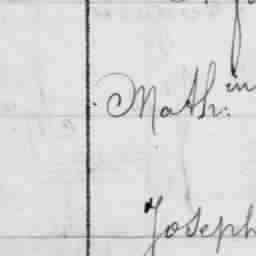 Math: in
Joseph